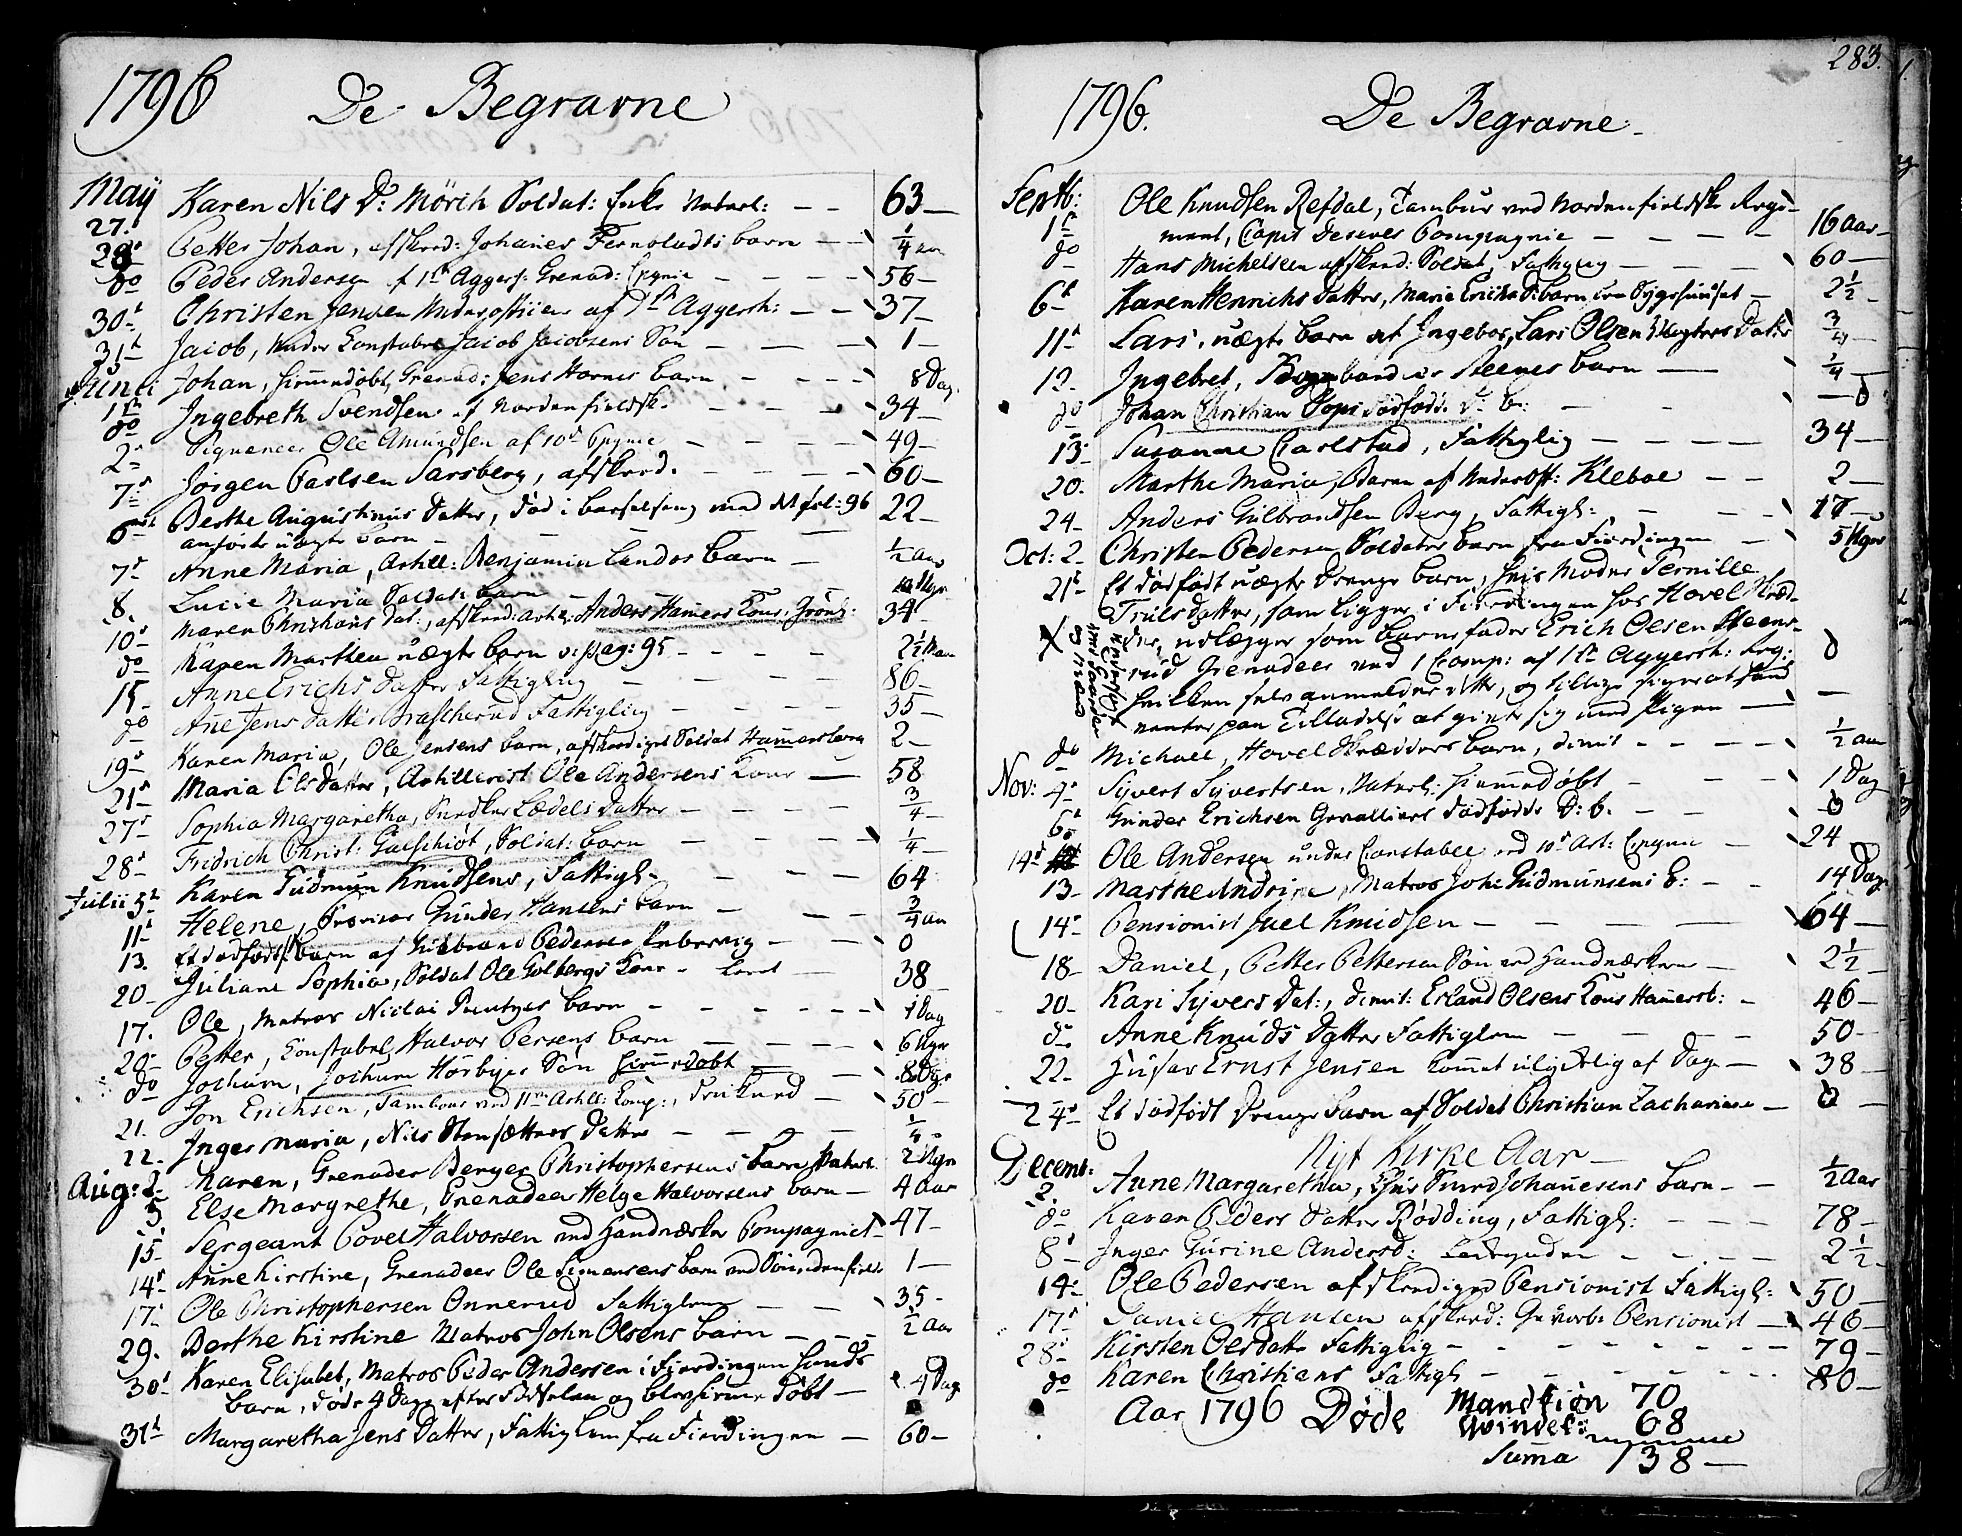 1796 De Begravne
May
27. Karen Nils D: Mörch Soldat: Enke Natarl: 63
28 Petter Johan, afskeed: Johanes Fernbladts barn 1/4 aar
do Peder Andersen af 1te Aggers: Grenad: Cpgnie 56
30t Christen Jensen Underofficier af 1te Aggersh: 37
31t Jacob, Under Constabel Jacob Jacobsens Søn 1
Junii Johan, hiemmedøbt, Grenad: Jens Hornes barn 8 Dag
1te
do Ingebreth Svendsen af Nordenfieldsk. 34
2 Pigueneer Ole Amundsen af 10de Cpgnie 49
7 Jørgen Carlsen Sarsberg, afskeed. 60
6 Berthe Augustinus Datter, død i barselseng med 22
anførte uægte barn
7 Anne Maria, Artill: Benjamin Landos barn 1/2 aar
8. Lucie Maria Soldat: barn Ugr
10 Maren Christians Dat:, afskeed: Artil: Anders Hamers Kone, Grönl: 34
do Karen Marthea uægte barn v: pag: 95 2 1/2
15 Anne Erichs Datter Fattiglig 86
do Ane Jens Datter Brascherud Fattiglig 35
19 Karen Maria, Ole Jensens barn, afskediget Soldat Hammersborg 2
21 Maria Ols Datter, Artillerist Ole Andersens Kone 58
27 Sophia Margaretha, Snedker Lædels Datter 3/4
28 Fridrich Christ: Gulschiøt, Soldat: barn 1/4
Julii 5t Karen Gudmun Knudsens, Fattigl. 64
11 Helene, Provisor Gunder Hansens barn 3/4 aar
13. Et dødfødt barn af Gulbrand Pedersen 0
20 Juliane Sophia, Soldat Ole Golbergs Kone 38
17. Ole, Matros Niclai barn 1 Dag
20 Petter, Constabel Halvor Persens barn 6 Ugr
do Jochum, Jochum Hørbyes Søn hiemmedøbt 8 Dge
21. Jon Erichsen, Tambour ved 11te Artill: Comp:, 50
22. Inger Maria, Nils Stensætters Datter 1/4
Aug: 2 Maren, Grenader Berger Christophersens barn 2 Ugr
5. Else Margrethe, Grenadeer Helge Halvorsens barn 4 aar
15 Sergeant Povel Halvorsen ved Handværker Compagniet 47
14 Anne Kirstine, Grenadeer Ole Simensens barn ved Søndenfield: 1
17 Ole Christophersen Onnerud Fattiglem 35
29. Berthe Kirstine Matros John Olsens barn 1/2 aar
30t Karen Elisabet, Matros Peder Andersen i Fierdingen hands
barn, døde 4 Dage efter Fødselen og blev hiemme døbt 4 Dag
31t Margaretha Jens Datter, Fattiglem fra Fierdingen 60

283.
1796. De Begravne
Septb: Ole Knudsen Refdal, Tambur ved Nordenfieldske Regi-
1te ment, Capit: Compagnie 16 aar
do Hans Michelsen afskeed: Soldat, Fattiglig 60
6t Karen Henrichs Datter, Marie Erichs D: barn fra Sygehuuset 2 1/2
11 Lars, uægte barn af Ingebor, Lars Olsen Vægters Datter 3/4
12. Ingebret, Bogbinder Steenes barn 1/4
do Johan Christian dødfødt D: b: 0
13 Susanne Carlstad, Fattiglig 34
20. Marthe Maria, Baren af Underoff: Kleboe 2
24 Anders Gulbrandsen Berg, Fattigl: 17
Oct: 2 Christen Pedersen Soldaters barn fra Fierdingen 5 Uger
21t Et dødfødt uægte Drenge barn, hvis Moder Pernille
Truls datter, som ligger i Fierdingen hos Hovel Skræd-
der, udlægger som barnefader Erich Olsen Steens-
rud Grenadeer ved 1 Comp: af 1te Aggersh: Reg: 0
hvilken selv anmelder dette, og tillige siger at hand
venter paa Tilladelse at givte sig med Pigen
do Michael, Hovel Skrædders barn, dimit 1/2 aar
Nov: 4 Syvert Syvertsen, Naturl: hiemmedøbt 1 Dag
6t Gunder Erichsen Gevalliers dødfødte D: b. 0
14d Ole Andersen under Constabel ved 10de Art: Cpgnie 24
13 Marthe Andrine, Matros Joh: Gudmunsens B: 14 Dag
14 Pensionist Juel Knudsen 64
18 Daniel, Petter Pettersen Søn ved Handværkerne 2 1/2
20 Kari Syvers Dat:, dimit: Erland Olsens Kone Hamersb: 46
do Anne Knuds Datter Fattiglem 50
22 Husar Ernst Jensen kommet ulykkelig af Dage 38
24 Et dødfødt Drenge Barn af Soldat Christian Zacharias 0
Nyt Kirke Aar
Decemb:
2. Anne Margaretha, Smed Johannesens barn 1/2 aar
do Karen Peders Datter Rødding, Fattigl: 78
8 Inger Gurine Andersd: 2 1/2
14 Ole Pedersen afskediget Pensionist Fattigl: 50
17 Daniel Hansen afskeed: Gevorb: Pensionist 46
28 Kirsten Olsdatter Fattiglig 79
do Karen Christians Fattigl 80
Aar 1796 Døde Mandkiøn 70
Qvindek: 68
Suma 138